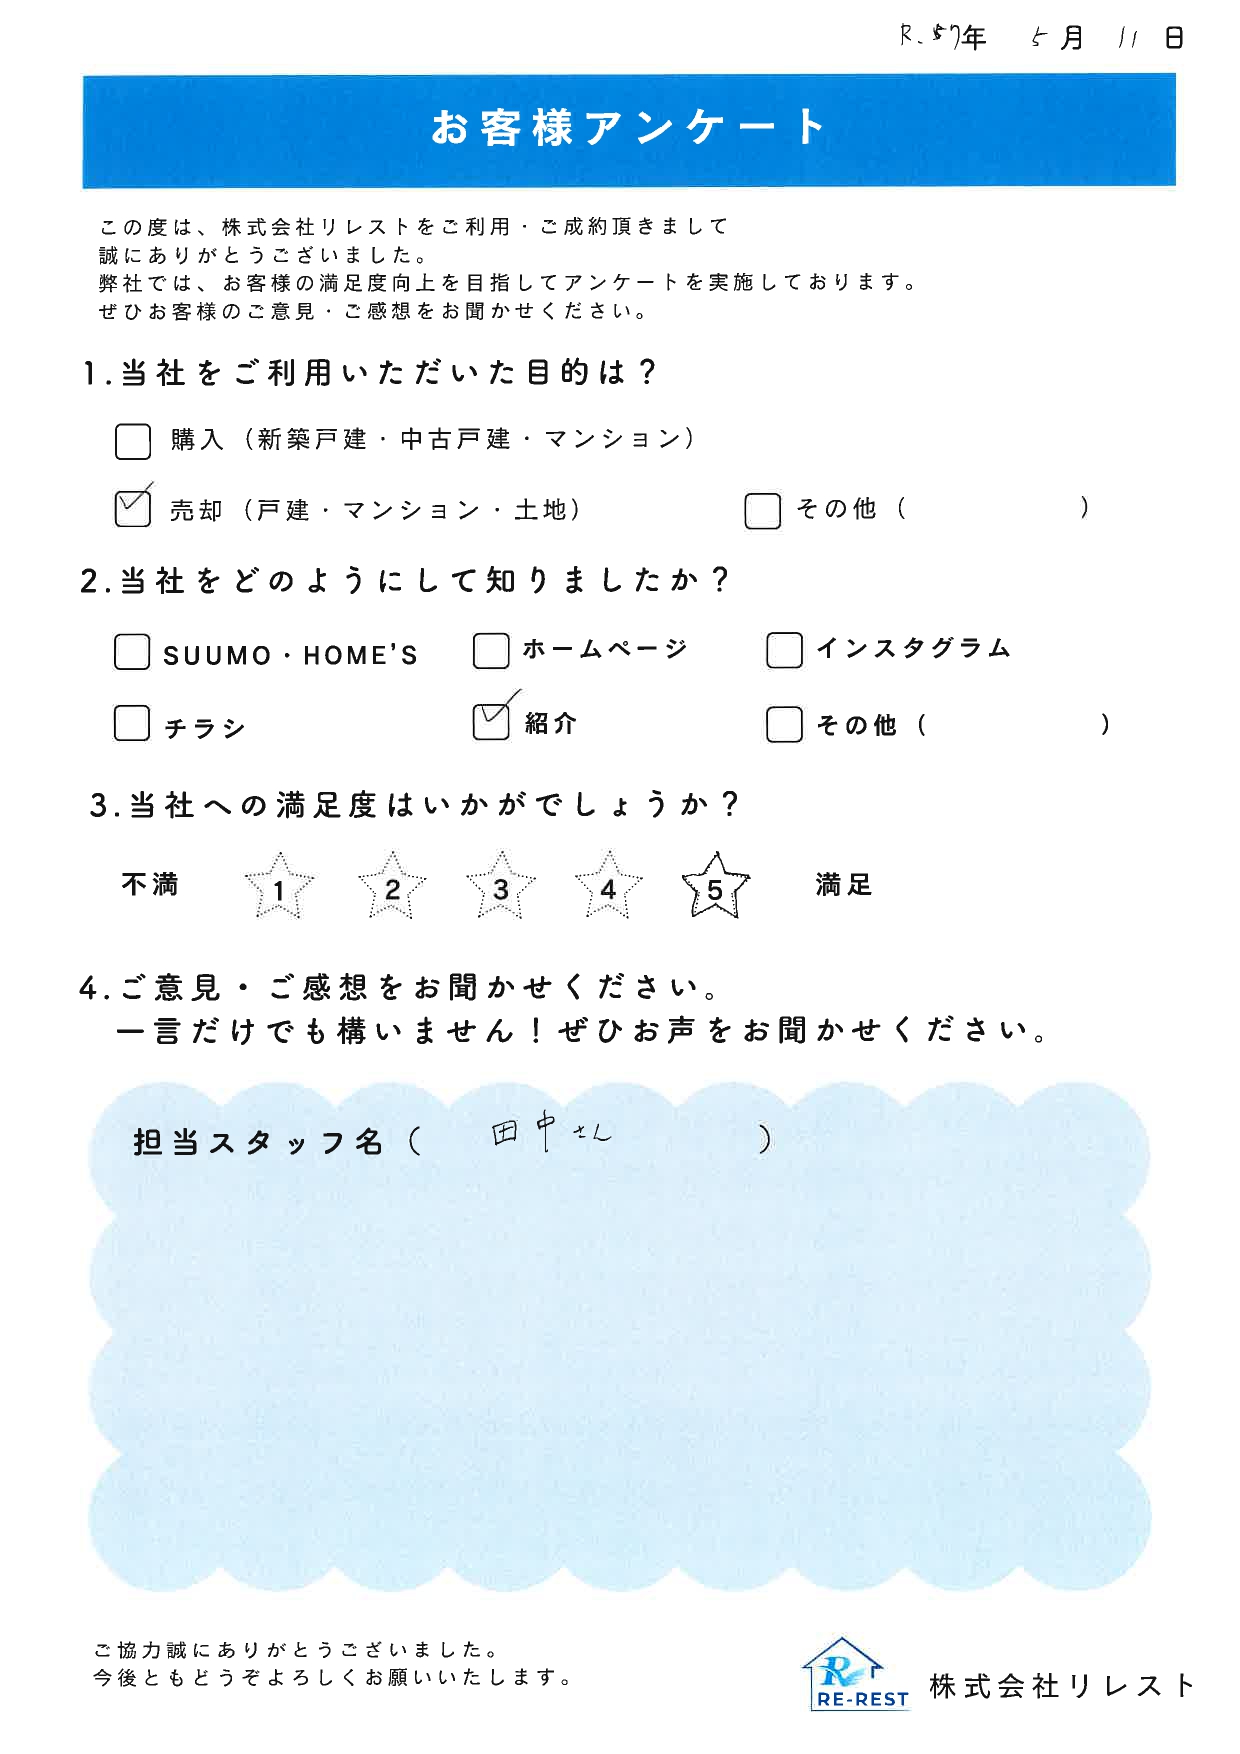 R.7年 5月 11日
お客様アンケート
この度は、株式会社リレストをご利用・ご成約頂きまして
誠にありがとうございました。
弊社では、お客様の満足度向上を目指してアンケートを実施しております。
ぜひお客様のご意見・ご感想をお聞かせください。
1.当社をご利用いただいた目的は？
購入（新築戸建・中古戸建・マンション）
売却（戸建・マンション・土地） その他（ ）
2.当社をどのようにして知りましたか？
SUUMO・HOME'S ホームページ インスタグラム
チラシ 紹介 その他（ ）
3.当社への満足度はいかがでしょうか？
不満 1 2 3 4 5 満足
4.ご意見・ご感想をお聞かせください。
一言だけでも構いません！ぜひお声をお聞かせください。
担当スタッフ名（ 田中さん ）
ご協力誠にありがとうございました。
今後ともどうぞよろしくお願いいたします。
R
RE-REST 株式会社リレスト